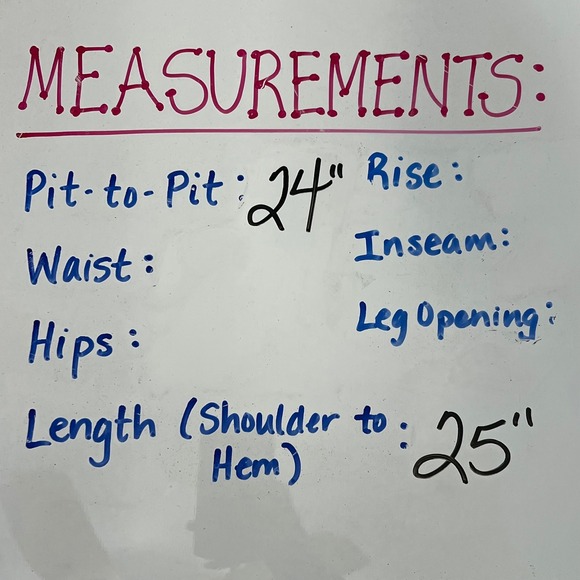 MEASUREMENTS:
Pit-to-Pit: 24"
Rise:
Waist:
Inseam:
Hips:
Leg Opening:
Length (Shoulder to
Hem) : 25"